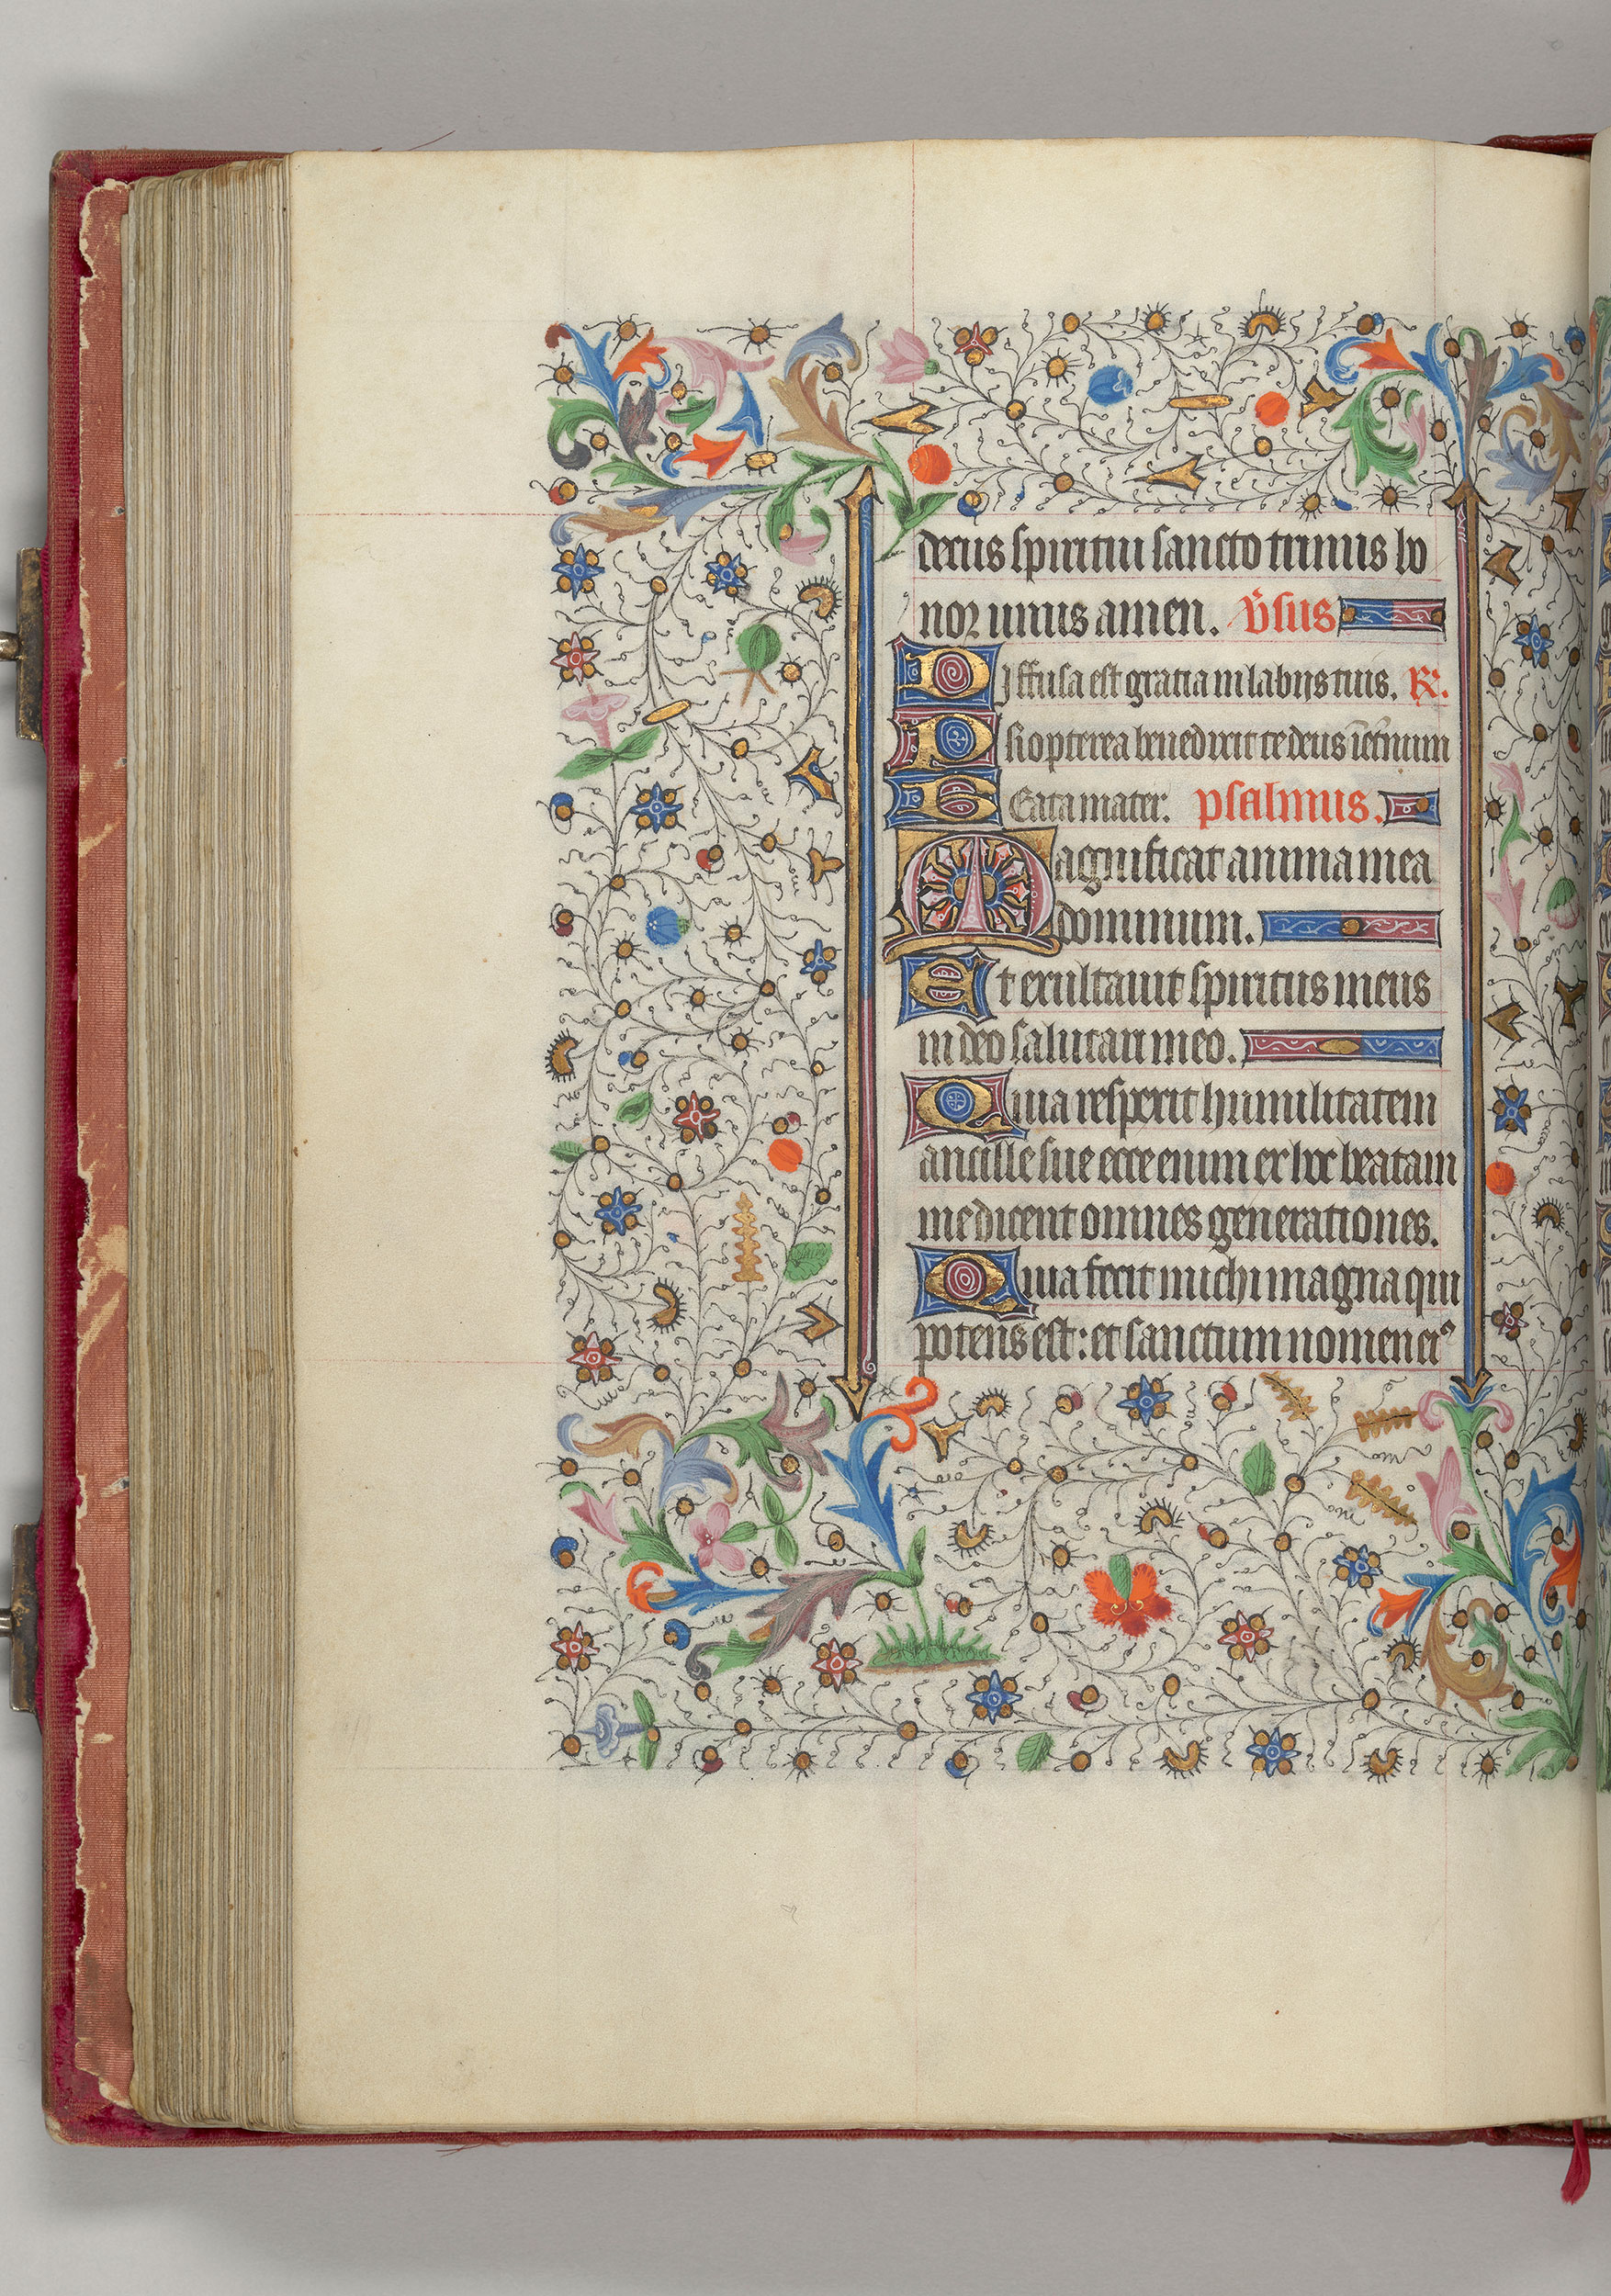 decus spiritui sancto trinus ho
nor unus amen. v̄sus
Diffusa est gratia in labijs tuis. R.
Propterea benedixit te deus ī et̄num
Beata mater. psalmus.
Magnificat anima mea
dominum.
Et exultavit spiritus meus
in deo salutari meo.
Quia respexit humilitatem
ancille sue ecce enim ex hoc beatam
me dicent omnes generationes.
Quia fecit michi magna qui
potens est: et sanctum nomen eiꝰ